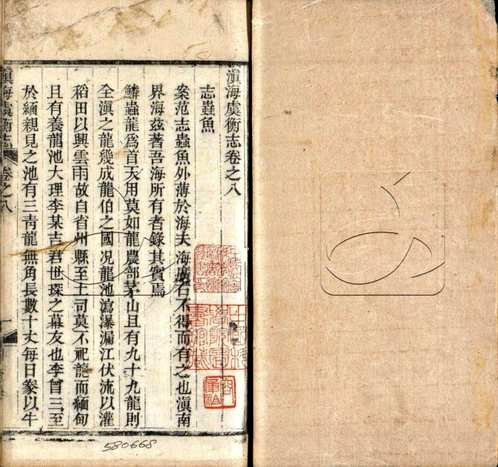 滇海虞衡志卷之八
志蟲魚
案范志蟲魚外薄於海夫海廣石不得而有之也滇南
界海茲著吾海所有者錄其實焉
鱗蟲龍爲首天用莫如龍農部茅山且有九十九龍則
全滇之龍幾成龍伯之國况龍池瀉瀑漏江伏流以灌
稻田以興雲雨故自省州縣至土司莫不祀龍而緬甸
且有養龍池大理李某吉君世琛之幕友也李曾三至
於緬親見之池有三靑龍無角長數十丈每日豢以牛
滇海虞衡志 卷之八 一
580668